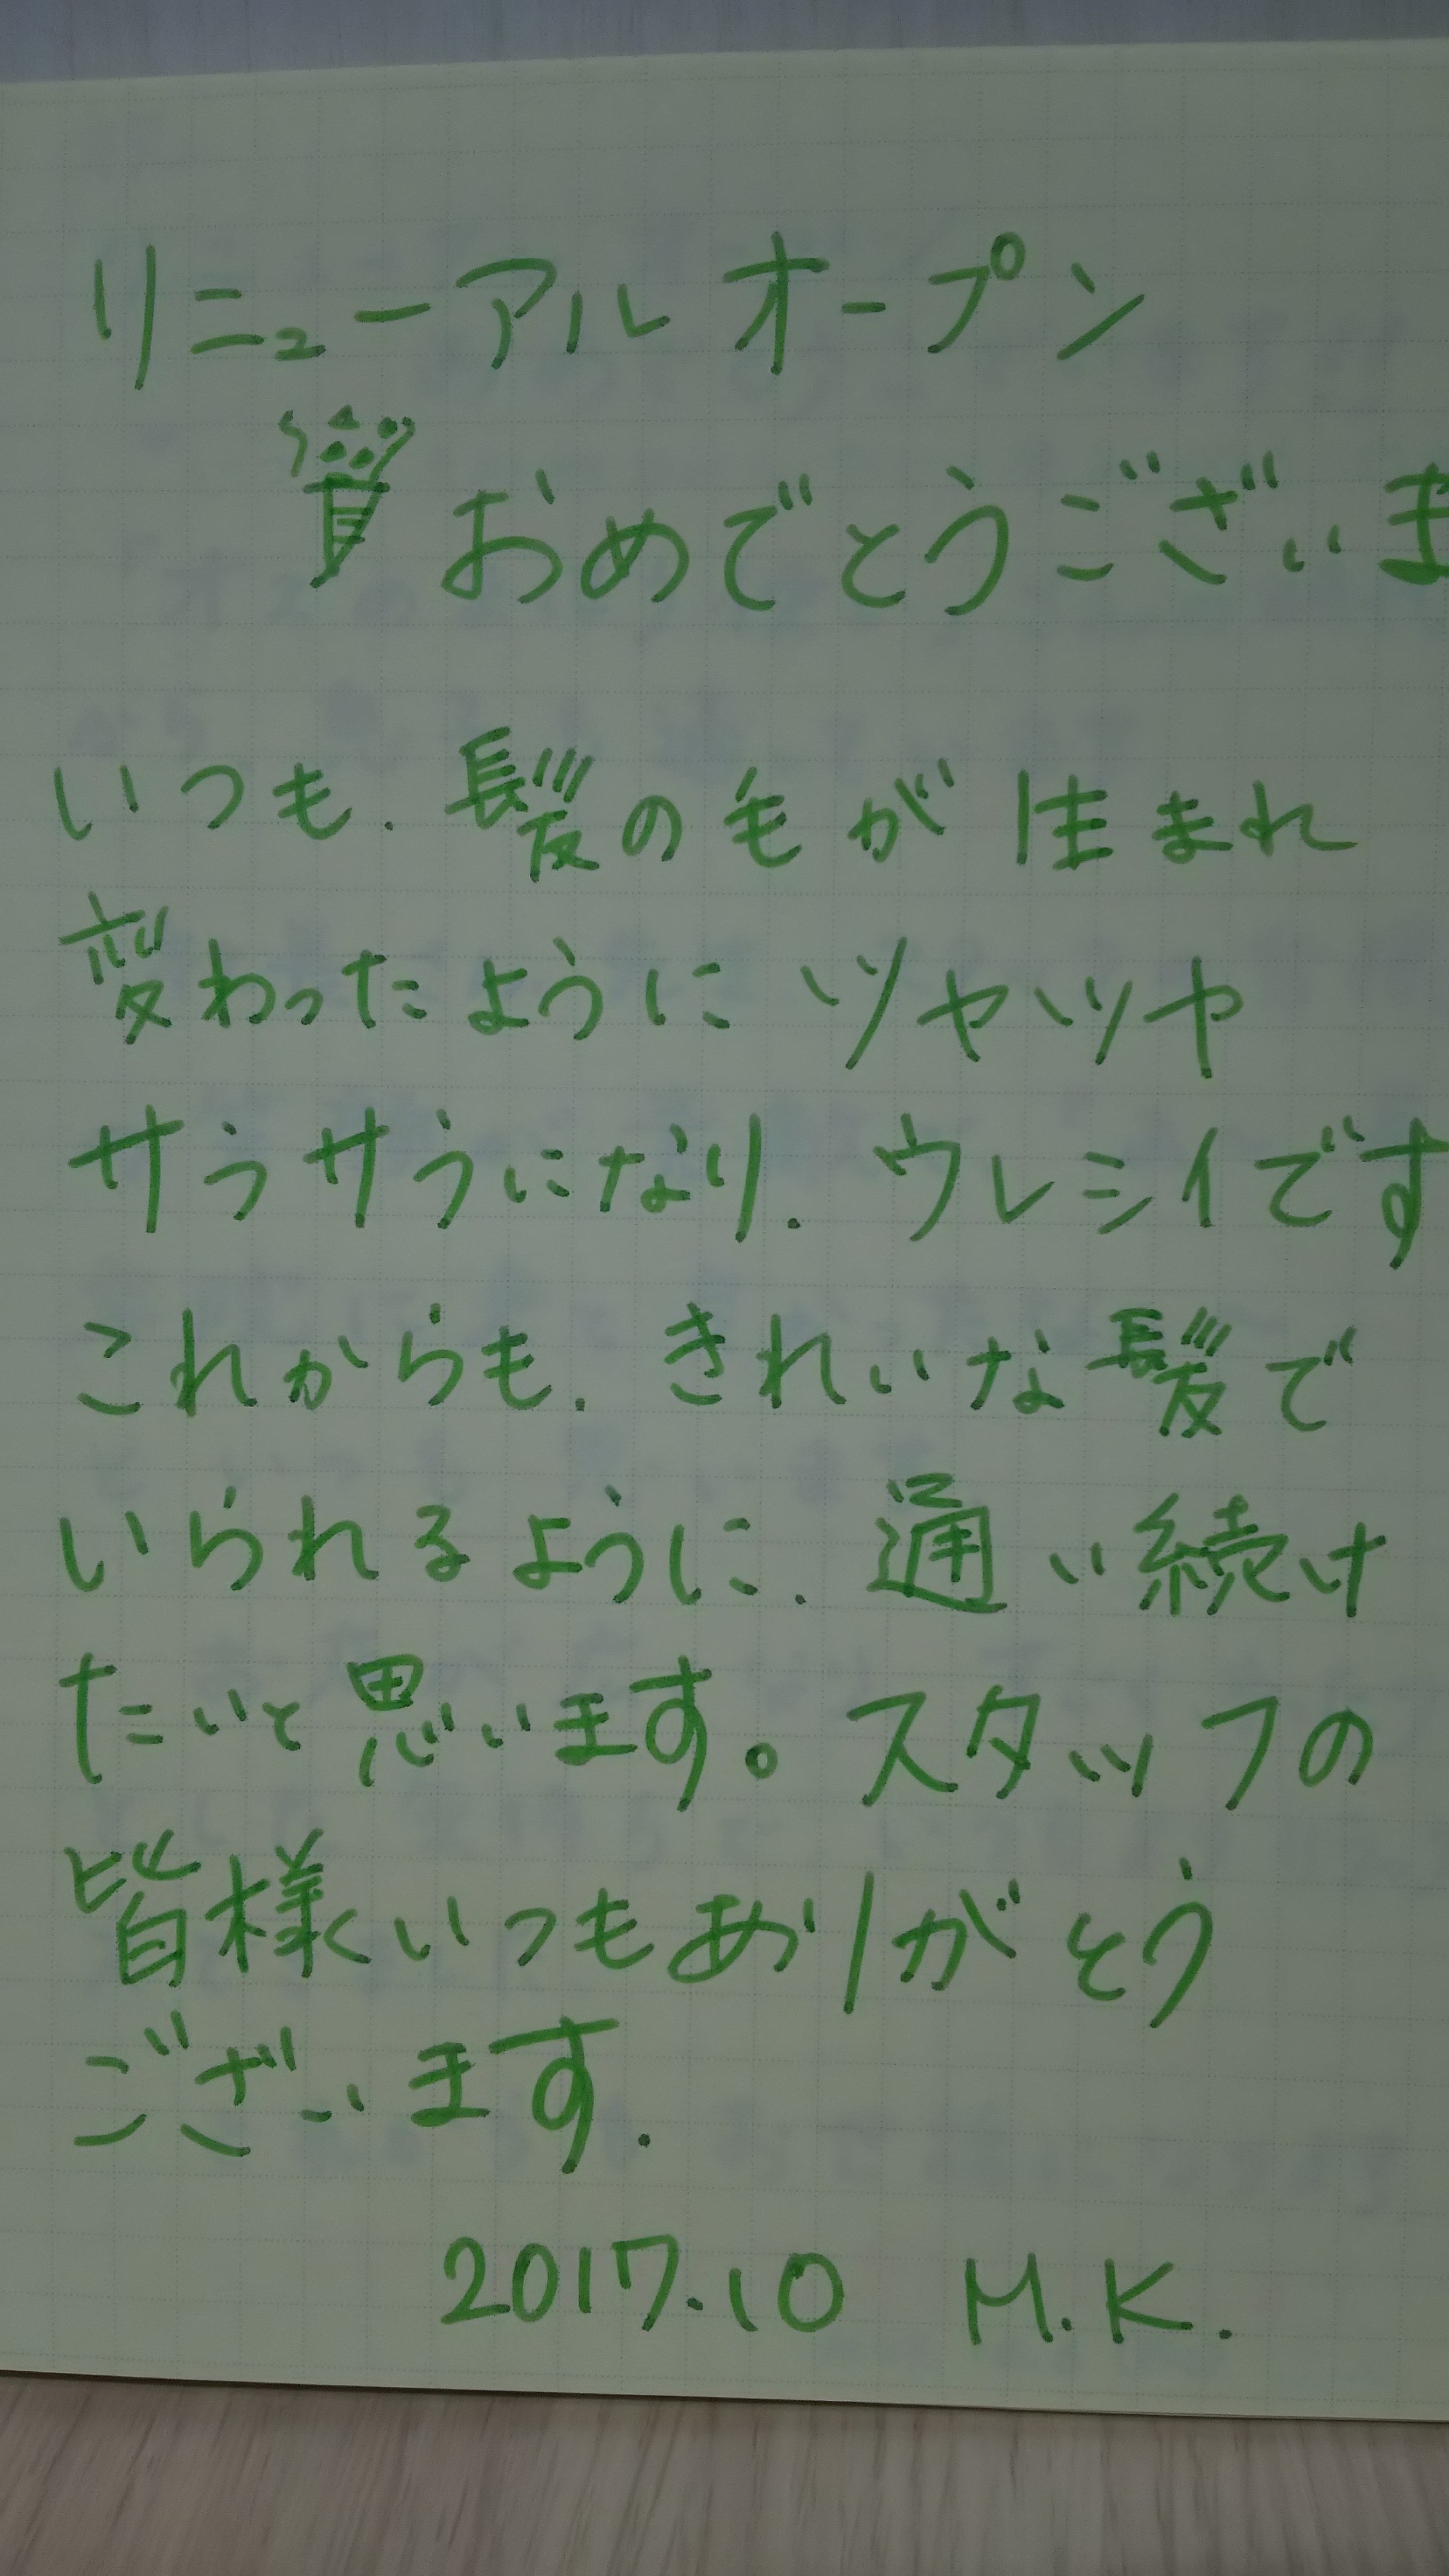 リニューアルオープン
おめでとうございま
いつも.髪の毛が生まれ
変わったようにツヤツヤ
サラサラになり.ウレシイです
これからも.きれいな髪で
いられるように.通い続け
たいと思います。スタッフの
皆様いつもありがとう
ございます.
2017.10 M.K.